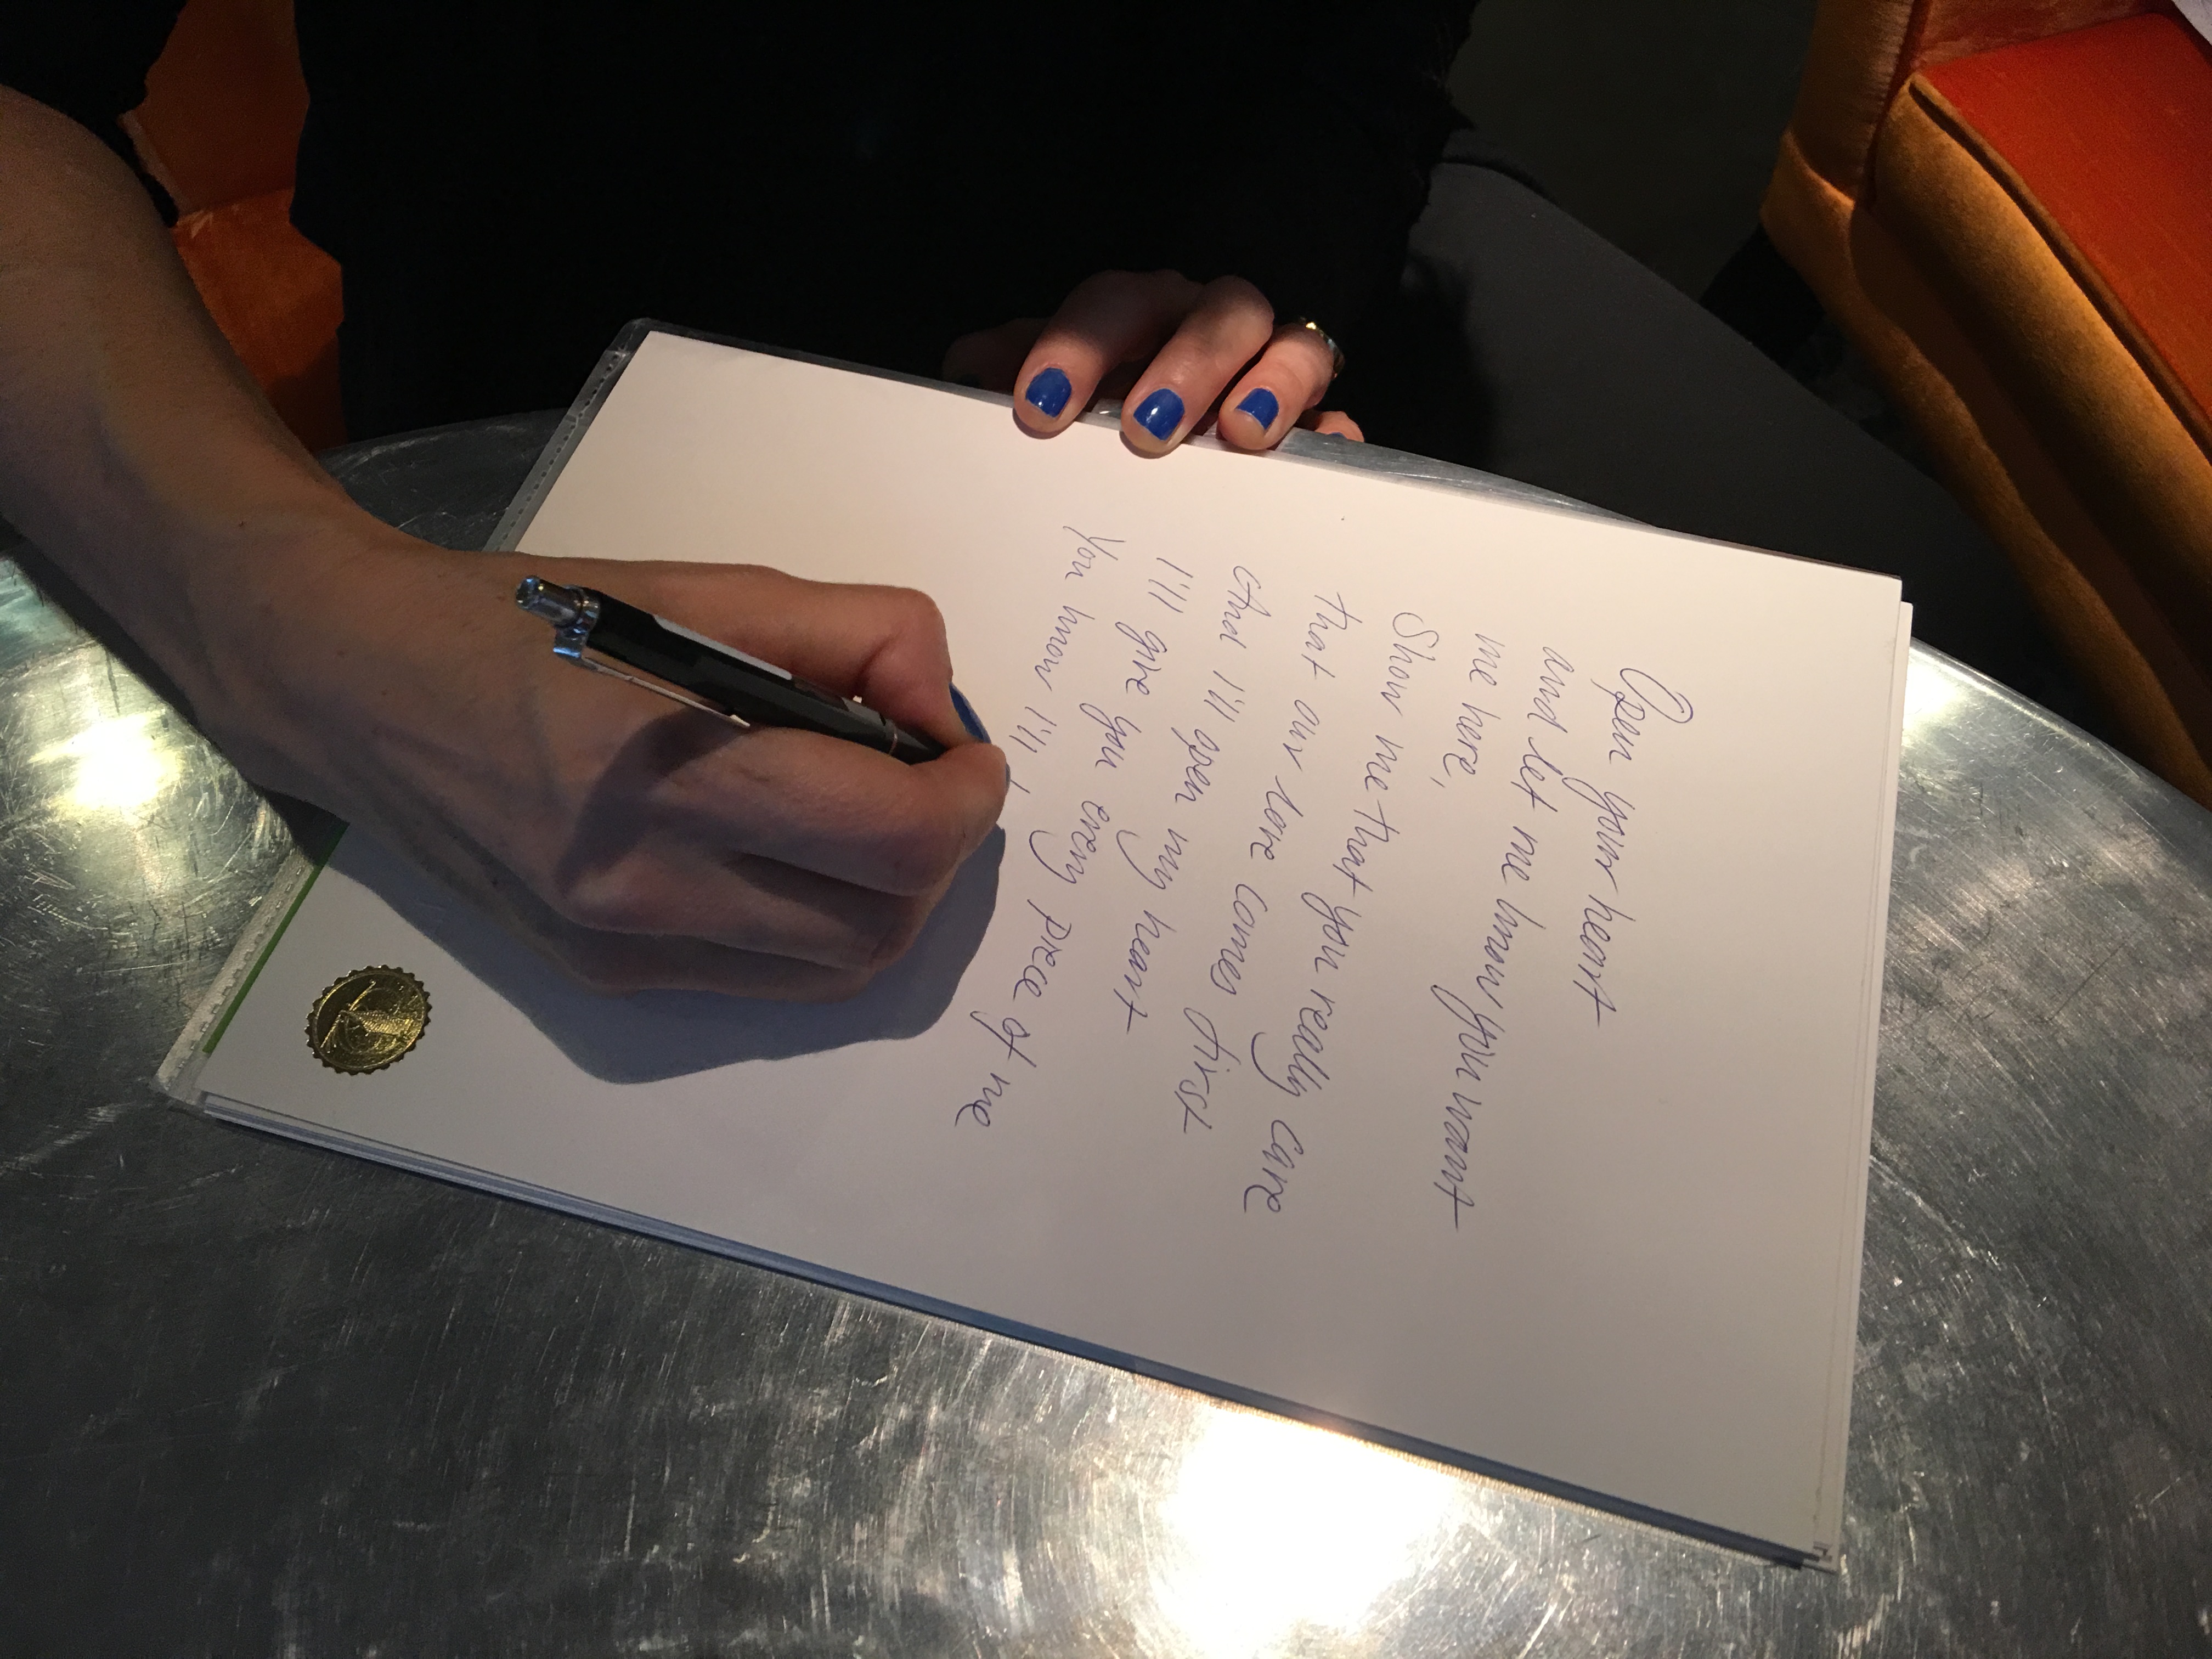 Open your heart
and let me know you want
me here,
Show me that you really care
that our love comes first
And I'll open my heart
I'll give you every piece of me
You know I'll